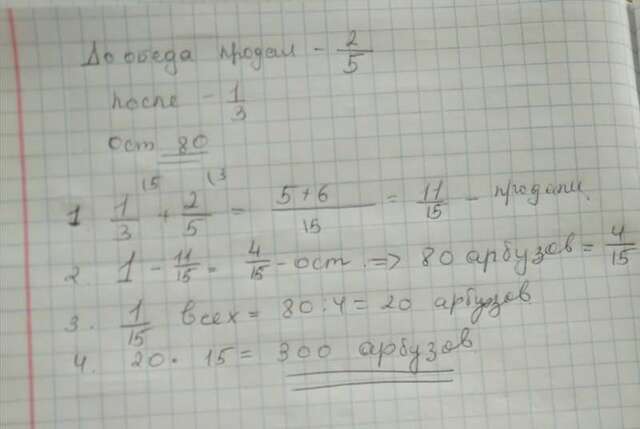 До обеда продал - 2/5
после - 1/3
ост 80
1 1/3 (5 + 2/5 (3 = 5+6/15 = 11/15 - продали.
2. 1 - 11/15 = 4/15 - ост. => 80 арбузов = 4/15
3. 1/15 всех = 80:4 = 20 арбузов
4. 20 · 15 = 300 арбузов